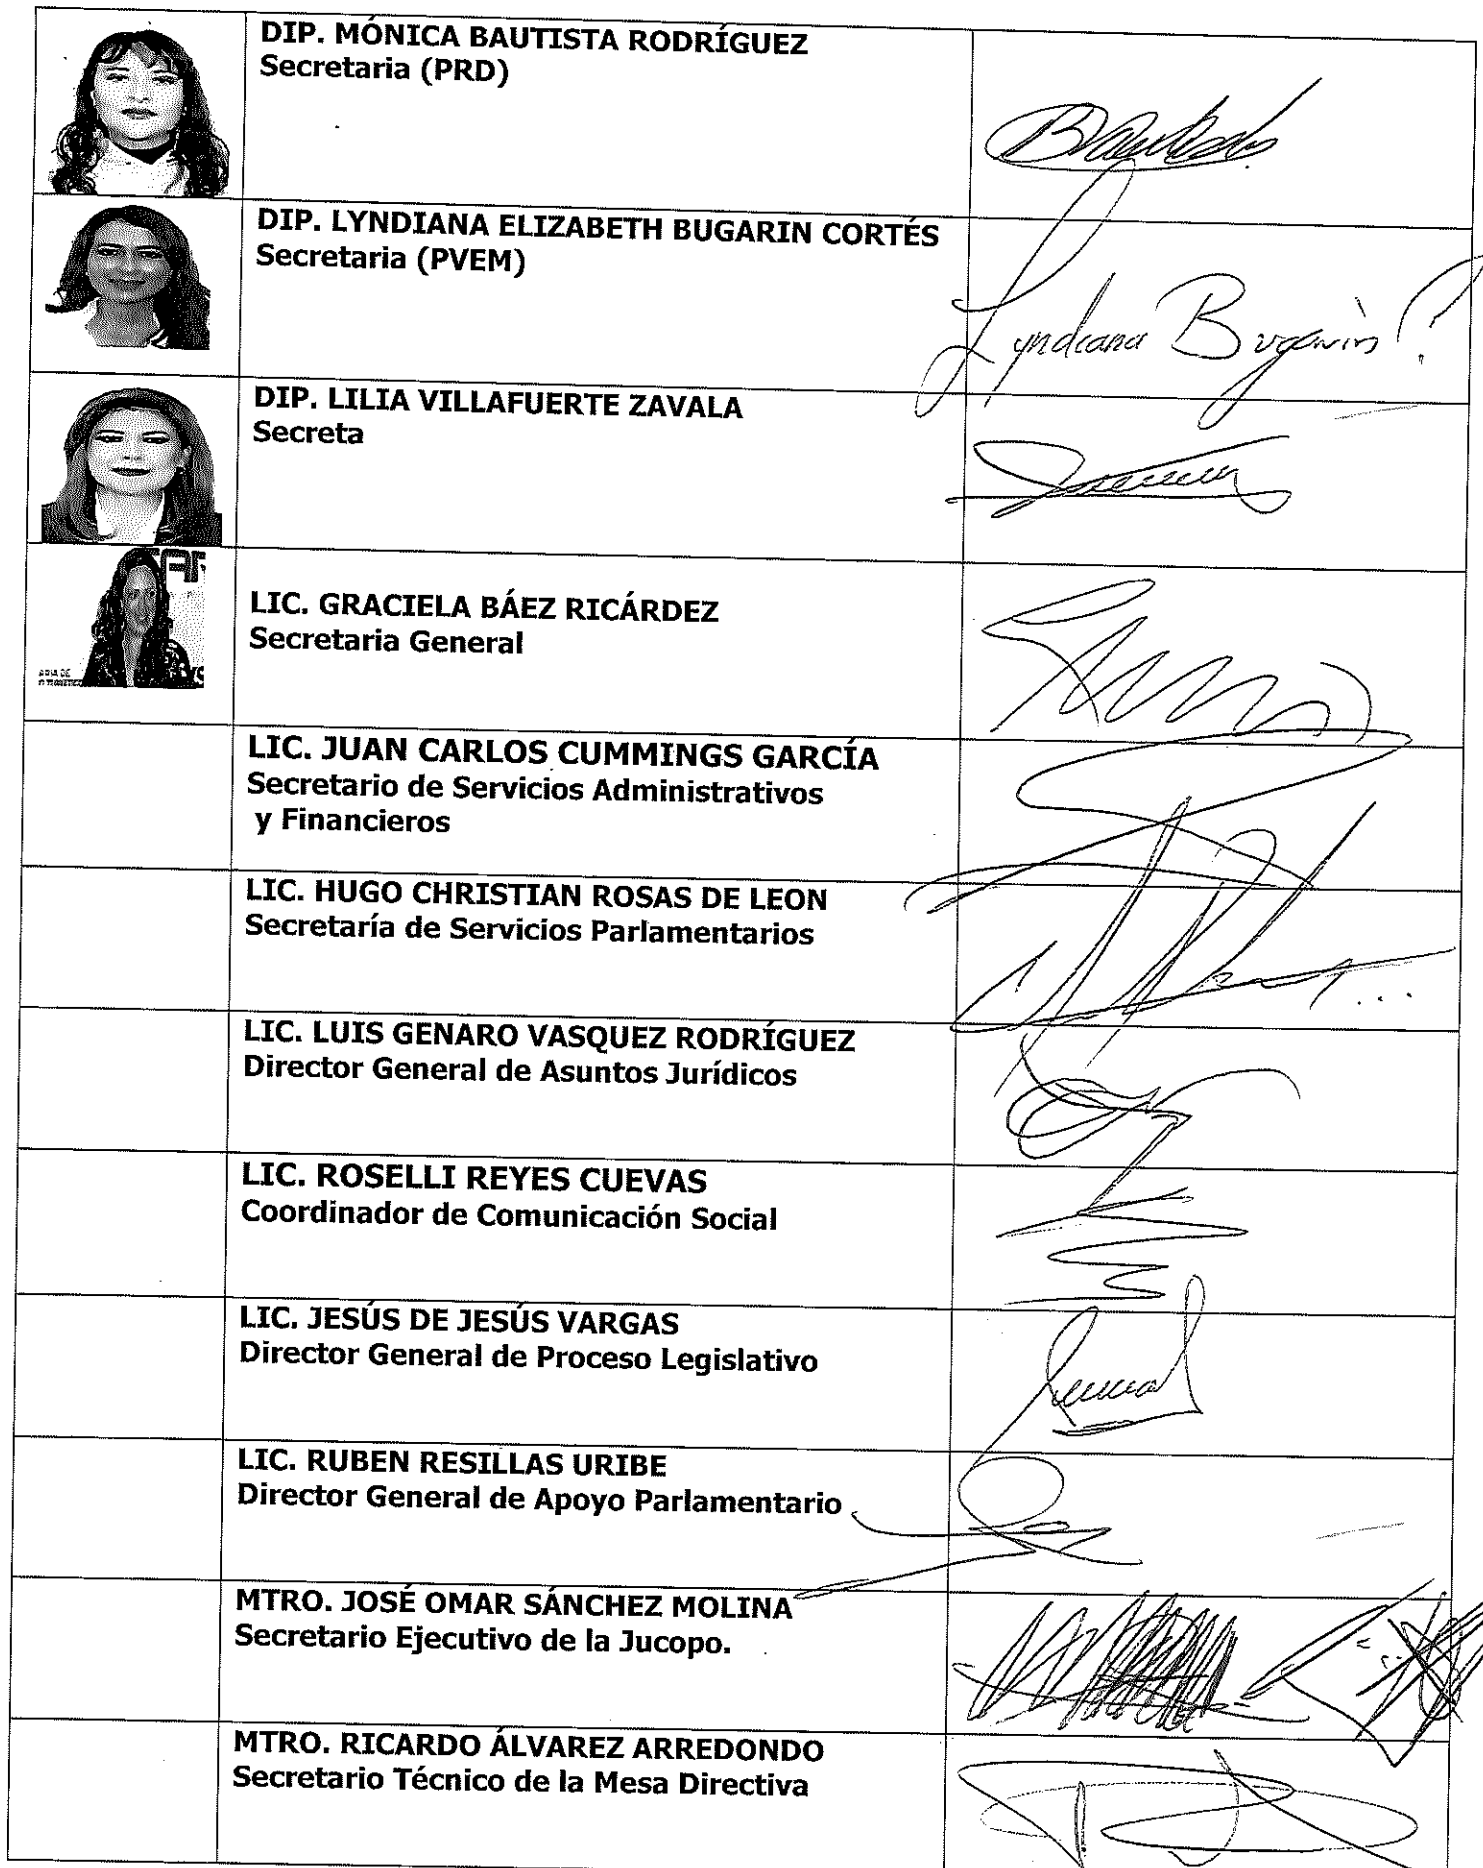 DIP. MÓNICA BAUTISTA RODRÍGUEZ
Secretaria (PRD)
Bautista
DIP. LYNDIANA ELIZABETH BUGARIN CORTÉS
Secretaria (PVEM)
Lyndiana Bugarin
DIP. LILIA VILLAFUERTE ZAVALA
Secreta
LIC. GRACIELA BÁEZ RICÁRDEZ
Secretaria General
LIC. JUAN CARLOS CUMMINGS GARCÍA
Secretario de Servicios Administrativos
y Financieros
LIC. HUGO CHRISTIAN ROSAS DE LEON
Secretaría de Servicios Parlamentarios
LIC. LUIS GENARO VASQUEZ RODRÍGUEZ
Director General de Asuntos Jurídicos
LIC. ROSELLI REYES CUEVAS
Coordinador de Comunicación Social
LIC. JESÚS DE JESÚS VARGAS
Director General de Proceso Legislativo
LIC. RUBEN RESILLAS URIBE
Director General de Apoyo Parlamentario
MTRO. JOSÉ OMAR SÁNCHEZ MOLINA
Secretario Ejecutivo de la Jucopo.
MTRO. RICARDO ÁLVAREZ ARREDONDO
Secretario Técnico de la Mesa Directiva